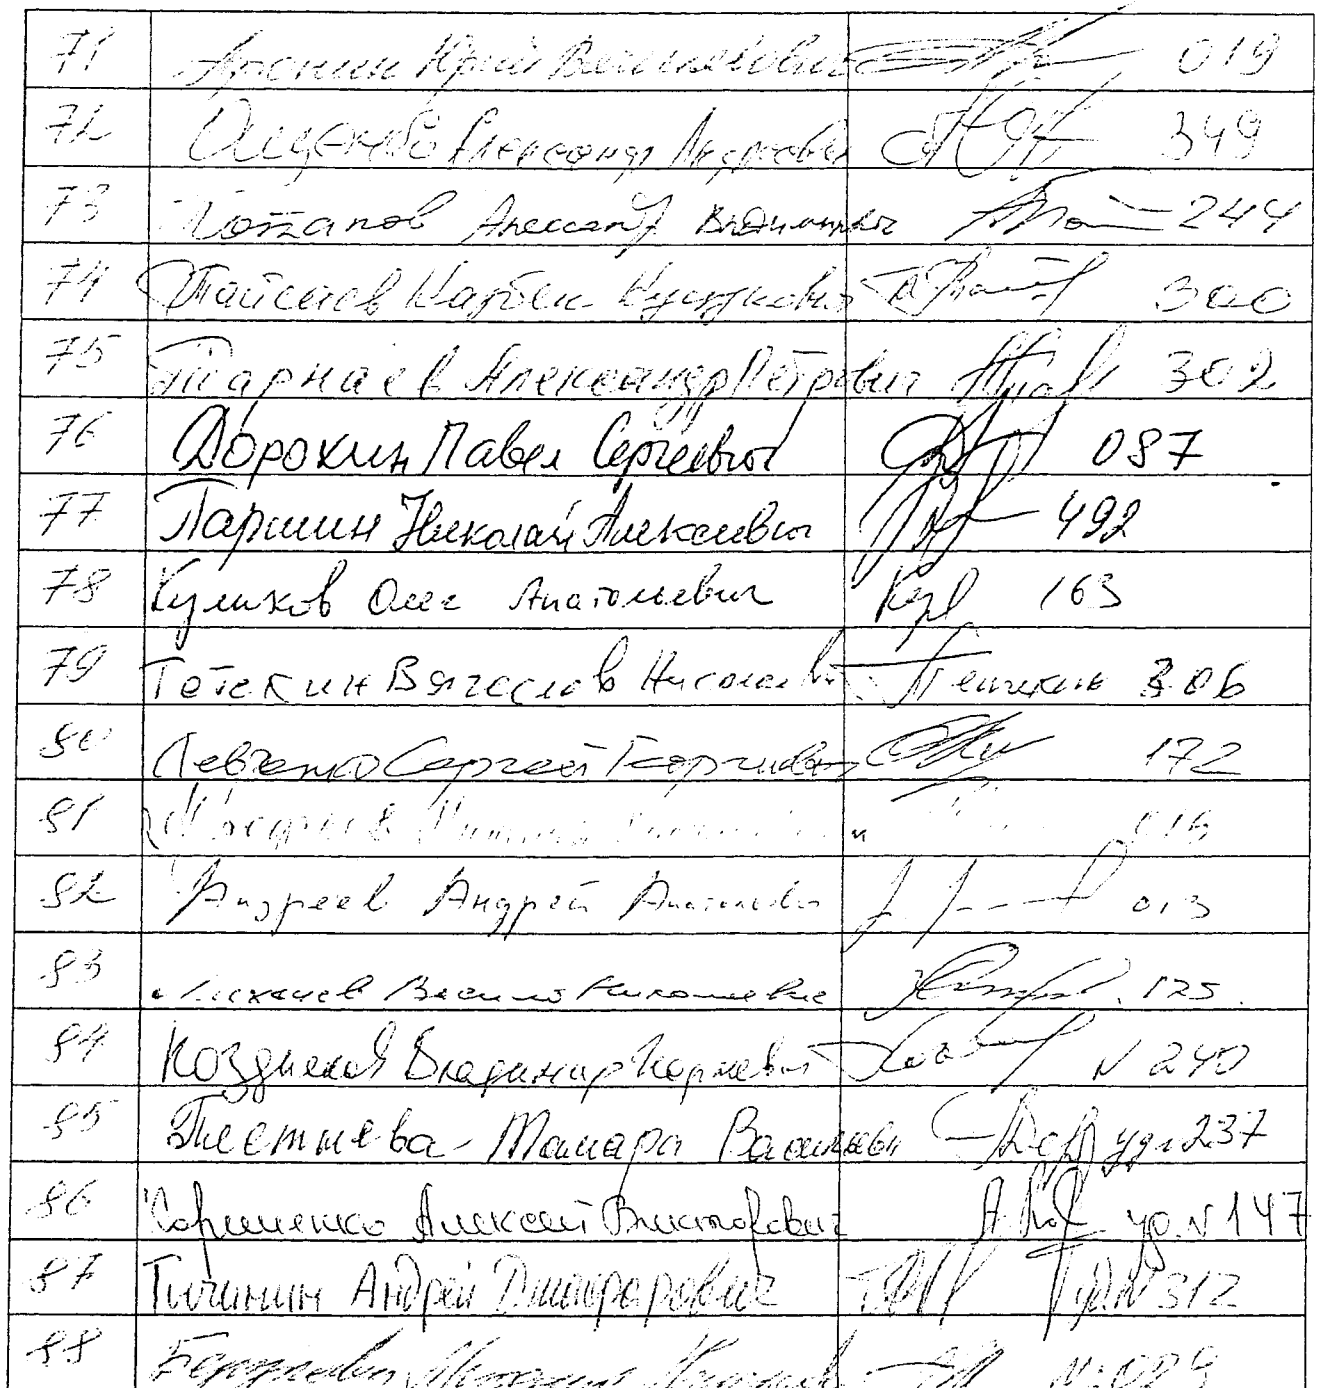 71 Афонин Юрий Вячеславович 019
72 Ющенко Александр Андреевич 349
73 Потапов Александр Владимирович 244
74 Тайсаев Казбек Куцукович 300
75 Тарнаев Александр Петрович 302
76 Дорохин Павел Сергеевич 087
77 Паршин Николай Алексеевич 492
78 Куликов Олег Анатольевич 163
79 Тетекин Вячеслав Николаевич 306
80 Левченко Сергей Георгиевич 172
81
82 Андреев Андрей Анатольевич 013
83 Василий Николаевич 125
84 Поздняков Владимир Георгиевич N 240
85 Плетнева Тамара Васильевн уд. 237
86 Корниенко Алексей Викторович уд. N 147
87 Тычинин Андрей уд. N 312
88 Берулава Михаил Николаев N: 029